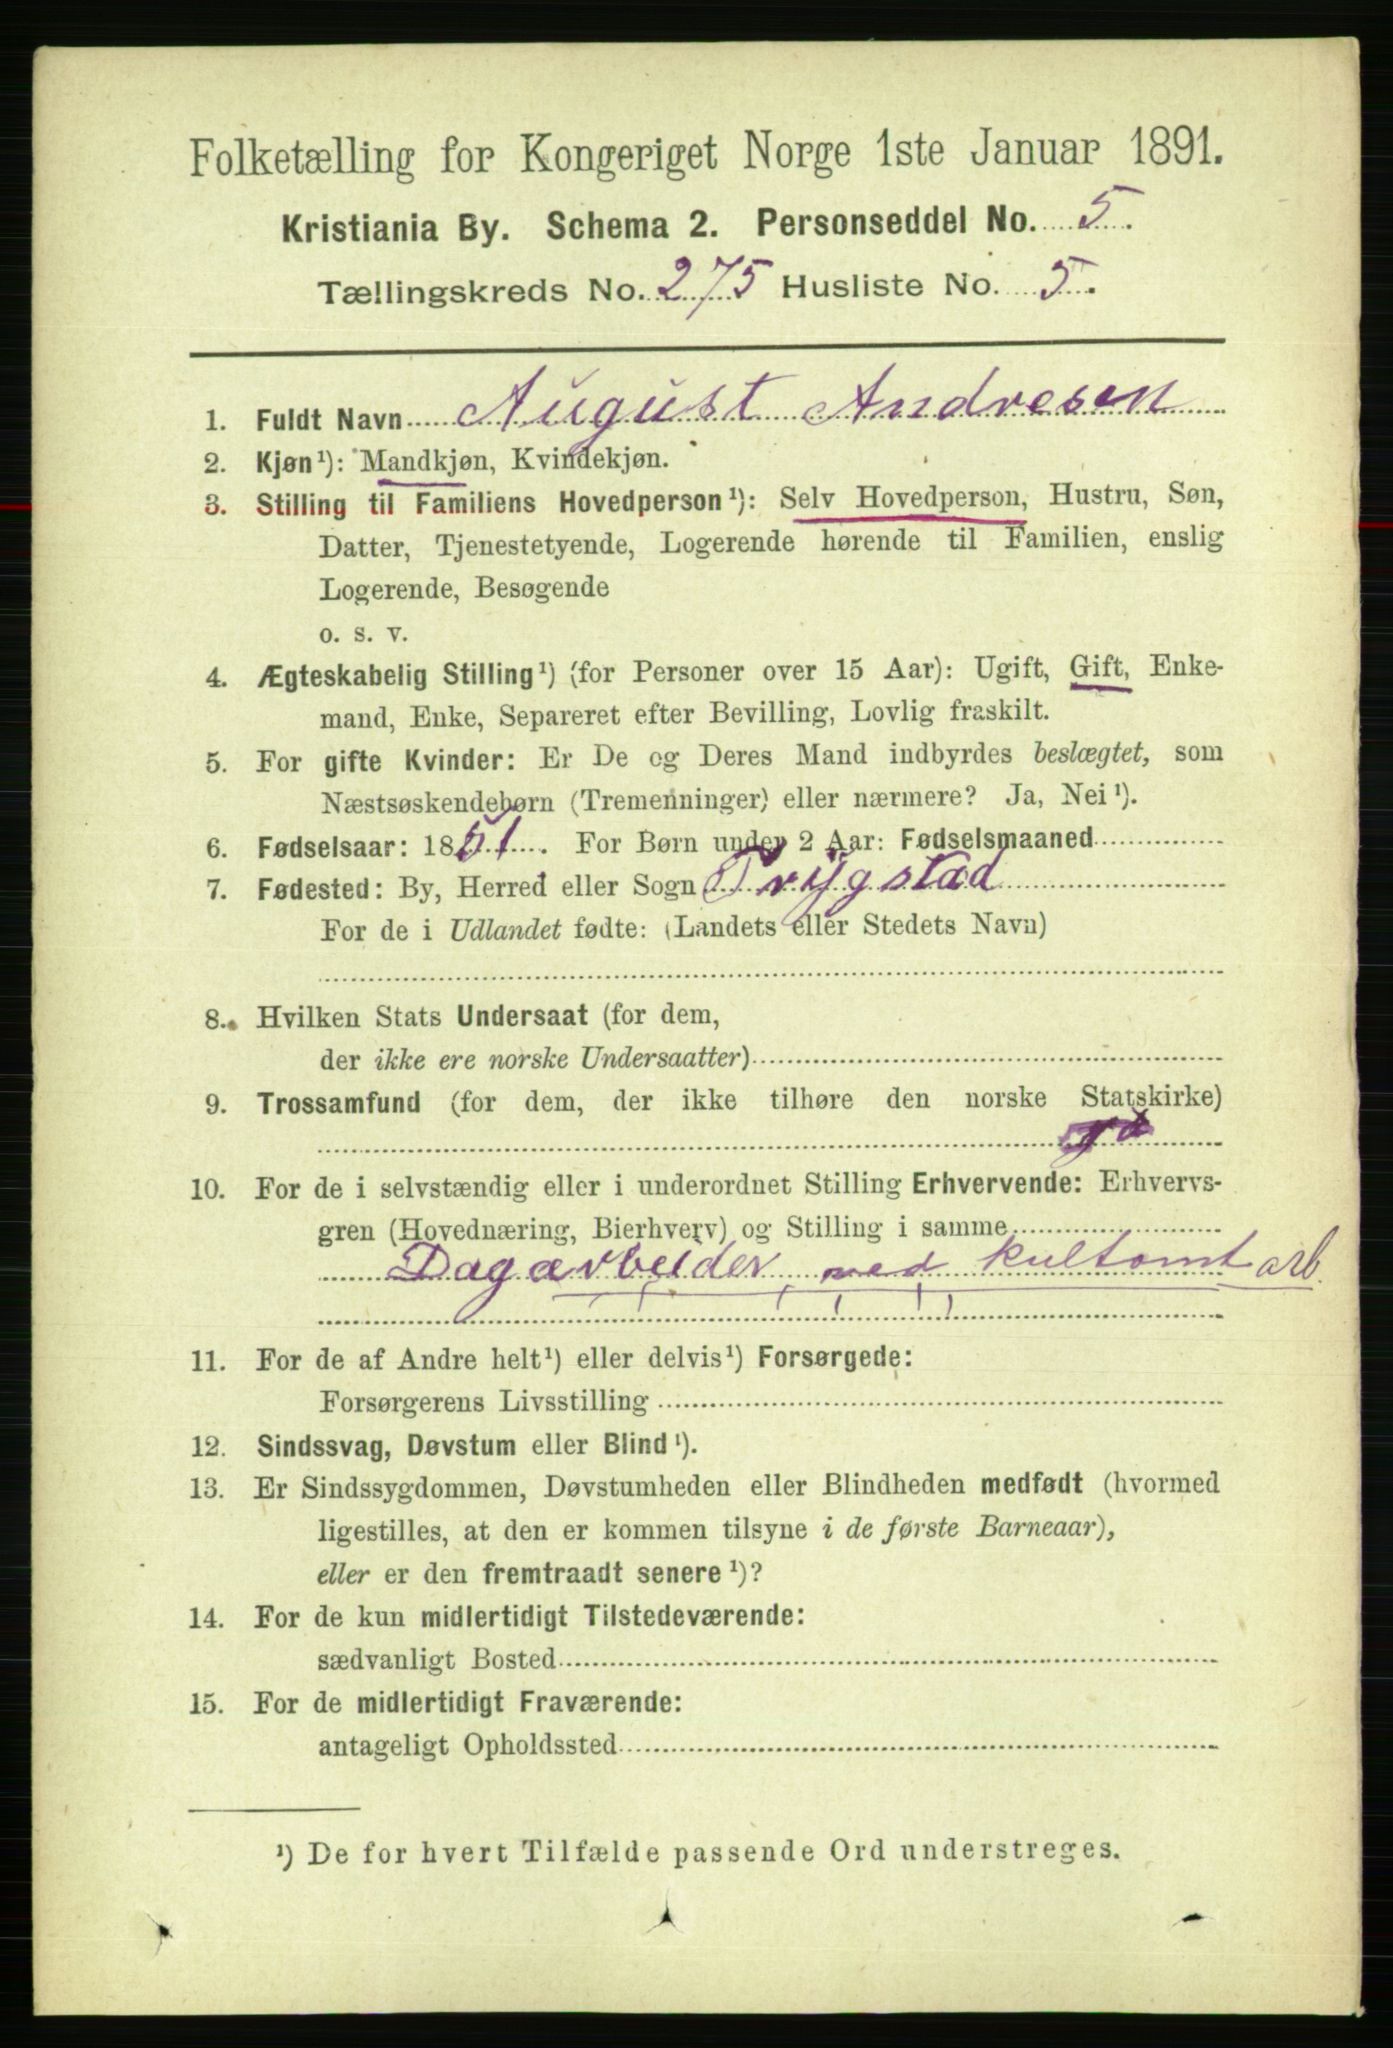 Folketælling for Kongeriget Norge 1ste Januar 1891.
Kristiania By. Schema 2. Personseddel No. 5.
Tællingskreds No. 275 Husliste No. 5.
1. Fuldt Navn August Andresen
2. Kjøn¹): Mandkjøn, Kvindekjøn.
3. Stilling til Familiens Hovedperson¹): Selv Hovedperson, Hustru, Søn,
Datter, Tjenestetyende, Logerende hørende til Familien, enslig
Logerende, Besøgende
o. s. v.
4. Ægteskabelig Stilling¹) (for Personer over 15 Aar): Ugift, Gift, Enke-
mand, Enke, Separeret efter Bevilling, Lovlig fraskilt.
5. For gifte Kvinder: Er De og Deres Mand indbyrdes beslægtet, som
Næstsøskendebørn (Tremenninger) eller nærmere? Ja, Nei¹).
6. Fødselsaar: 1851. For Børn under 2 Aar: Fødselsmaaned
7. Fødested: By, Herred eller Sogn Trygstad
For de i Udlandet fødte: (Landets eller Stedets Navn)
8. Hvilken Stats Undersaat (for dem,
der ikke ere norske Undersaatter)
9. Trossamfund (for dem, der ikke tilhøre den norske Statskirke)
10. For de i selvstændig eller i underordnet Stilling Erhvervende: Erhvervs-
gren (Hovednæring, Bierhverv) og Stilling i samme
Dagarbeider ved kultomt arb.
11. For de af Andre helt¹) eller delvis¹) Forsørgede:
Forsørgerens Livsstilling
12. Sindssvag, Døvstum eller Blind¹).
13. Er Sindssygdommen, Døvstumheden eller Blindheden medfødt (hvormed
ligestilles, at den er kommen tilsyne i de første Barneaar),
eller er den fremtraadt senere¹)?
14. For de kun midlertidigt Tilstedeværende:
sædvanligt Bosted
15. For de midlertidigt Fraværende:
antageligt Opholdssted
¹) De for hvert Tilfælde passende Ord understreges.